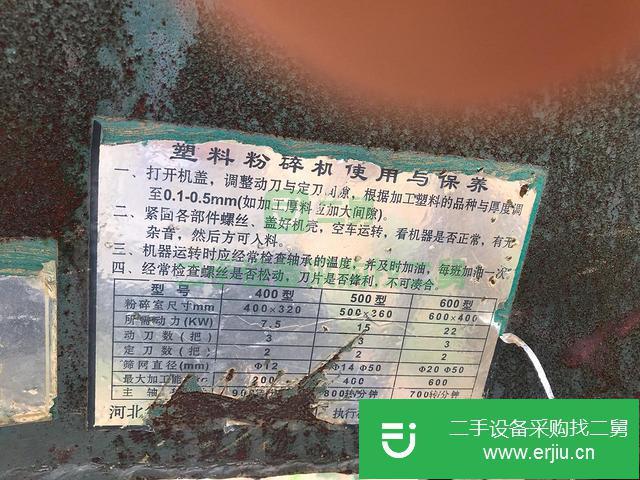 塑料粉碎机使用与保养
一、打开机盖，调整动刀与定刀间隙，根据加工塑料的品种与厚度调
至0.1-0.5mm(如加工厚料应加大间隙)。
二、紧固各部件螺丝、盖好机壳，空车运转，看机器是否正常，有无
杂音，然后方可入料。
三、机器运转时应经常检查轴承的温度，并及时加油，每班加油一次
四、经常检查螺丝是否松动，刀片是否锋利，不可凑合。
型号 400型 500型 600型
粉碎室尺寸mm 400×320 500×360 600×400
所需动力(KW) 7.5 15 22
动刀数(把) 3 3 3
定刀数(把) 2 2 2
筛网直径(mm) Φ12 Φ14 Φ50 Φ20 Φ50
最大加工能 200 400 600
主轴 900 800转/分钟 700转/分钟
河北 执行
二手设备采购找二舅
www.erjiu.cn